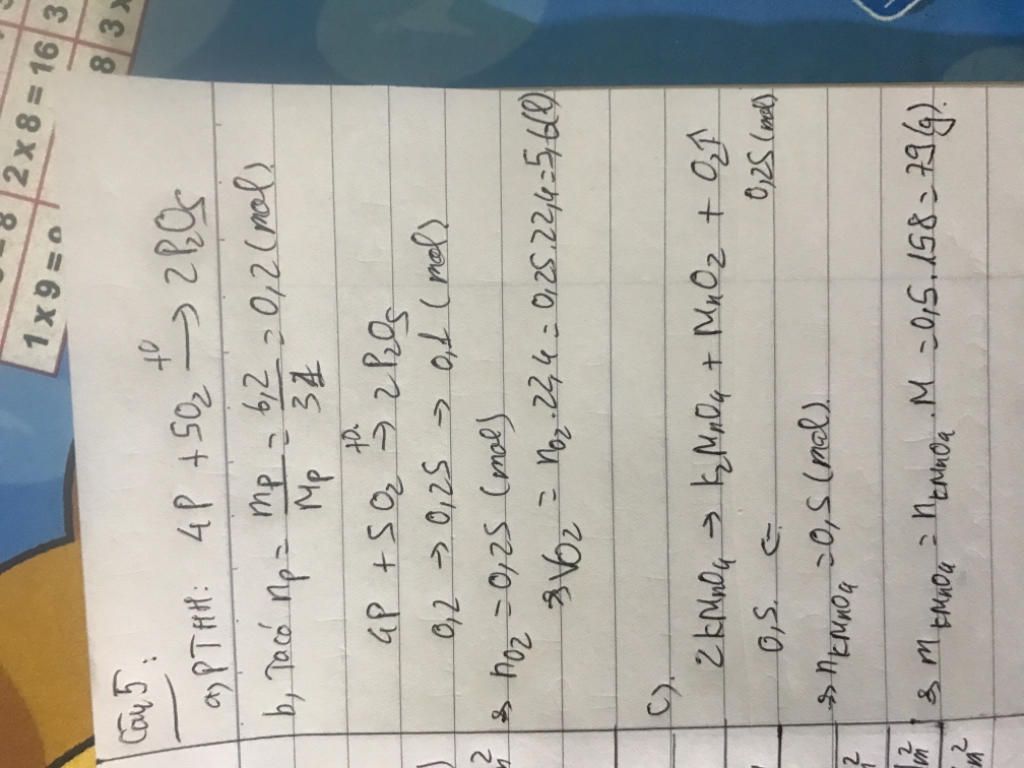 Câu 5:
a, PTHH: 4P + 5O₂ →(t⁰) 2P₂O₅
b, Ta có nₚ = mₚ/Mₚ = 6,2/31 = 0,2 (mol)
4P + 5O₂ →(t⁰) 2P₂O₅
0,2 → 0,25 → 0,1 (mol)
⇒ nO₂ = 0,25 (mol)
⇒ VO₂ = nO₂ . 22,4 = 0,25.22,4 = 5,6(l)
c).
2KMnO₄ → K₂MnO₄ + MnO₂ + O₂↑
0,5 ← 0,25 (mol)
⇒ nKMnO₄ = 0,5 (mol).
⇒ mKMnO₄ = nKMnO₄ . M = 0,5 . 158 = 79 (g).
2 x 8 = 16
1 x 9 =